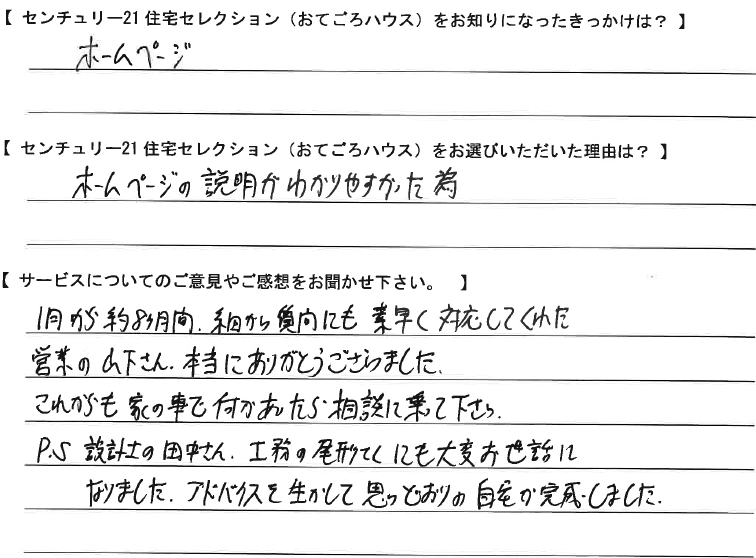 【 センチュリー21住宅セレクション（おてごろハウス）をお知りになったきっかけは？ 】
ホームページ
【 センチュリー21住宅セレクション（おてごろハウス）をお選びいただいた理由は？ 】
ホームページの説明がわかりやすかった為
【 サービスについてのご意見やご感想をお聞かせ下さい。 】
1月から約8ヶ月間、細から質問にも素早く対応してくれた
営業の山下さん、本当にありがとうございました。
これからも家の事で何かあったら相談に乗って下さい。
P.S 設計士の田中さん、工務の尾形さんにも大変お世話に
なりました。アドバイスを生かして思いどおりの自宅が完成しました。